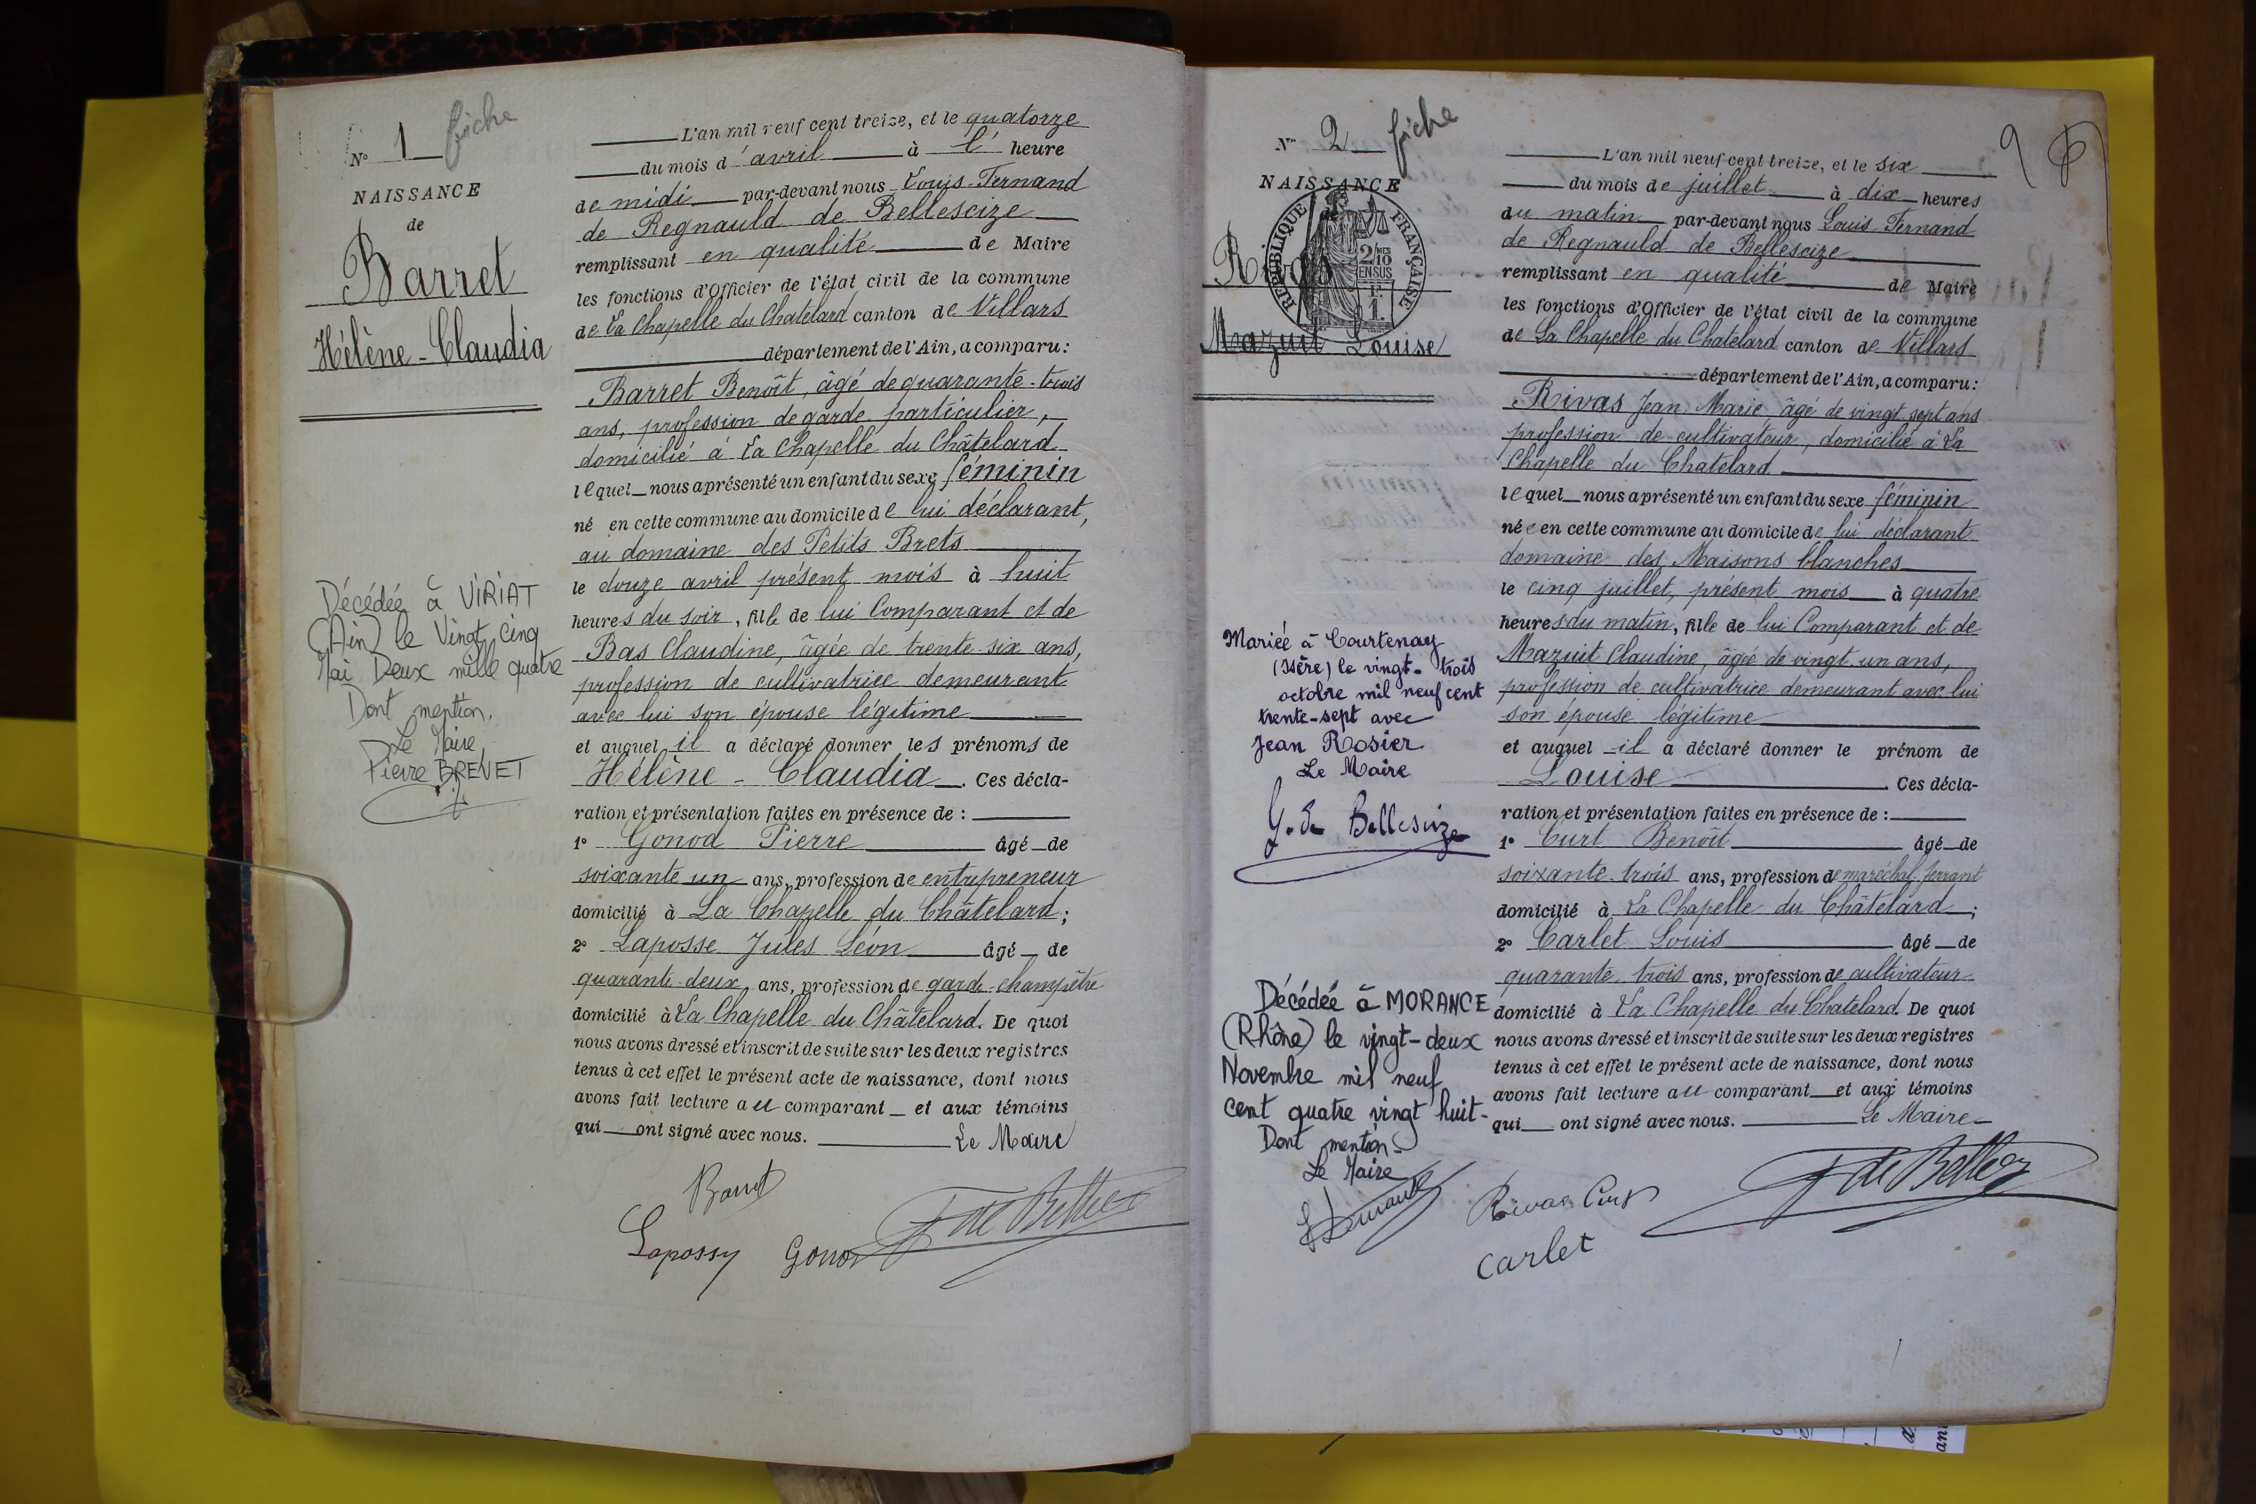 N° 1 fiche
NAISSANCE
de
Barret
Hélène-Claudia
Décédée à VIRIAT
(Ain) le Vingt cinq
Mai Deux mille quatre
Dont mention.
Le Maire,
Pierre BREVET
L'an mil neuf cent treize, et le quatorze
du mois d'avril à l' heure
de midi par-devant nous Louis-Fernand
de Regnauld de Bellescize
remplissant en qualité de Maire
les fonctions d'Officier de l'état civil de la commune
de La Chapelle du Chatelard canton de Villars
département de l'Ain, a comparu :
Barret Benoît, âgé de quarante-trois
ans, profession de garde particulier,
domicilié à La Chapelle du Châtelard
lequel nous a présenté un enfant du sexe féminin
né en cette commune au domicile de lui déclarant,
au domaine des Petits Brets
le douze avril présent mois à huit
heures du soir, fille de lui Comparant et de
Bas Claudine, âgée de trente-six ans,
profession de cultivatrice demeurant
avec lui son épouse légitime
et auquel il a déclaré donner les prénoms de
Hélène-Claudia. Ces décla-
ration et présentation faites en présence de :
1° Gonod Pierre âgé de
soixante un ans, profession de entrepreneur
domicilié à La Chapelle du Châtelard ;
2° Laposse Jules Léon âgé de
quarante-deux ans, profession de garde-champêtre
domicilié à La Chapelle du Châtelard. De quoi
nous avons dressé et inscrit de suite sur les deux registres
tenus à cet effet le présent acte de naissance, dont nous
avons fait lecture au comparant et aux témoins
qui ont signé avec nous. Le Maire
Barret
Lapossy Gonod F de Bellescize
N° 2 fiche
NAISSANCE
de
RÉPUBLIQUE FRANÇAISE
2/10 EN SUS
1
Rivas
Mazuit Louise
Mariée à Courtenay
(Isère) le vingt-trois
octobre mil neuf cent
trente-sept avec
Jean Rosier
Le Maire
G. de Bellescize
Décédée à MORANCE
(Rhône) le vingt-deux
Novembre mil neuf
cent quatre vingt huit-
Dont mention-
Le Maire
L'an mil neuf cent treize, et le six
du mois de juillet à dix heures
du matin par-devant nous Louis Fernand
de Regnauld de Bellescize
remplissant en qualité de Maire
les fonctions d'Officier de l'état civil de la commune
de La Chapelle du Chatelard canton de Villars
département de l'Ain, a comparu :
Rivas Jean Marie âgé de vingt sept ans
profession de cultivateur, domicilié à La
Chapelle du Chatelard
lequel nous a présenté un enfant du sexe féminin
née en cette commune au domicile de lui déclarant
domaine des Maisons blanches
le cinq juillet, présent mois à quatre
heures du matin, fille de lui Comparant et de
Mazuit Claudine, âgée de vingt un ans,
profession de cultivatrice demeurant avec lui
son épouse légitime
et auquel il a déclaré donner le prénom de
Louise. Ces décla-
ration et présentation faites en présence de :
1° Curt Benoît âgé de
soixante-trois ans, profession de maréchal ferrant
domicilié à La Chapelle du Châtelard ;
2° Carlet Louis âgé de
quarante trois ans, profession de cultivateur
domicilié à La Chapelle du Chatelard. De quoi
nous avons dressé et inscrit de suite sur les deux registres
tenus à cet effet le présent acte de naissance, dont nous
avons fait lecture au comparant et aux témoins
qui ont signé avec nous. Le Maire
Rivas Curt F de Bellescize
Carlet